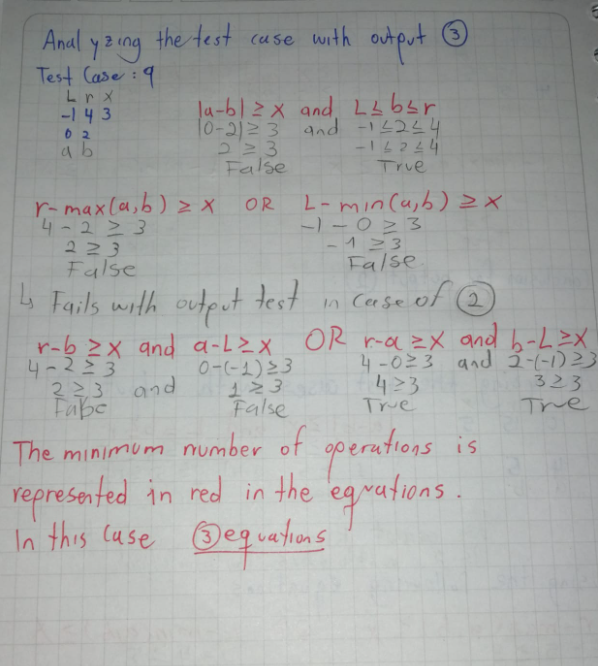 Analyzing the test case with output ③
Test Case: 9
L r X
-1 4 3
0 2
a b
|a-b| ≥ X and L ≤ b ≤ r
|0-2| ≥ 3 and -1 ≤ 2 ≤ 4
2 ≥ 3 -1 ≤ 2 ≤ 4
False True
r-max(a,b) ≥ X OR L-min(a,b) ≥ X
4-2 ≥ 3 -1-0 ≥ 3
2 ≥ 3 -1 ≥ 3
False False
↳ Fails with output test in case of ②
r-b ≥ X and a-L ≥ X OR r-a ≥ X and b-L ≥ X
4-2 ≥ 3 0-(-1) ≥ 3 4-0 ≥ 3 and 2-(-1) ≥ 3
2 ≥ 3 and 1 ≥ 3 4 ≥ 3 3 ≥ 3
False False True True
The minimum number of operations is
represented in red in the equations.
In this case ③ equations